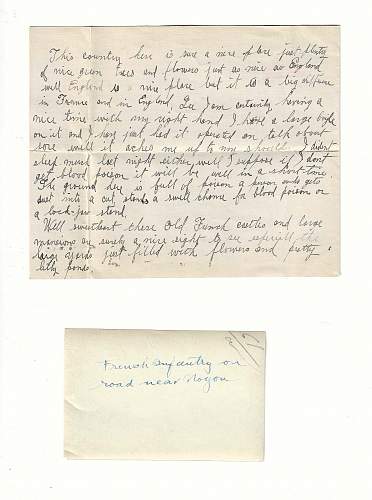 This country here is sure a nice place just plenty
of nice green trees and flowers just as nice as England
well England is a nice place but it is a big difference
in France and in England, Gee I am certainly having a
nice time with my right hand I have a large
on it and I have just had it operated on talk about
sore well it aches me up to my shoulder I didn't
sleep much last night either, well I suppose if I don't
get blood poison it will be well in a short time.
The ground here is full of poison a person who gets
dust into a cut stands a swell chance for blood poison or
a lock-jaw stand.
Well sweetheart these Old French castles and large
mansions are surely a nice sight to see especially the
large yards just filled with flowers and pretty
lilly ponds.
French Infantry on
road near Noyon